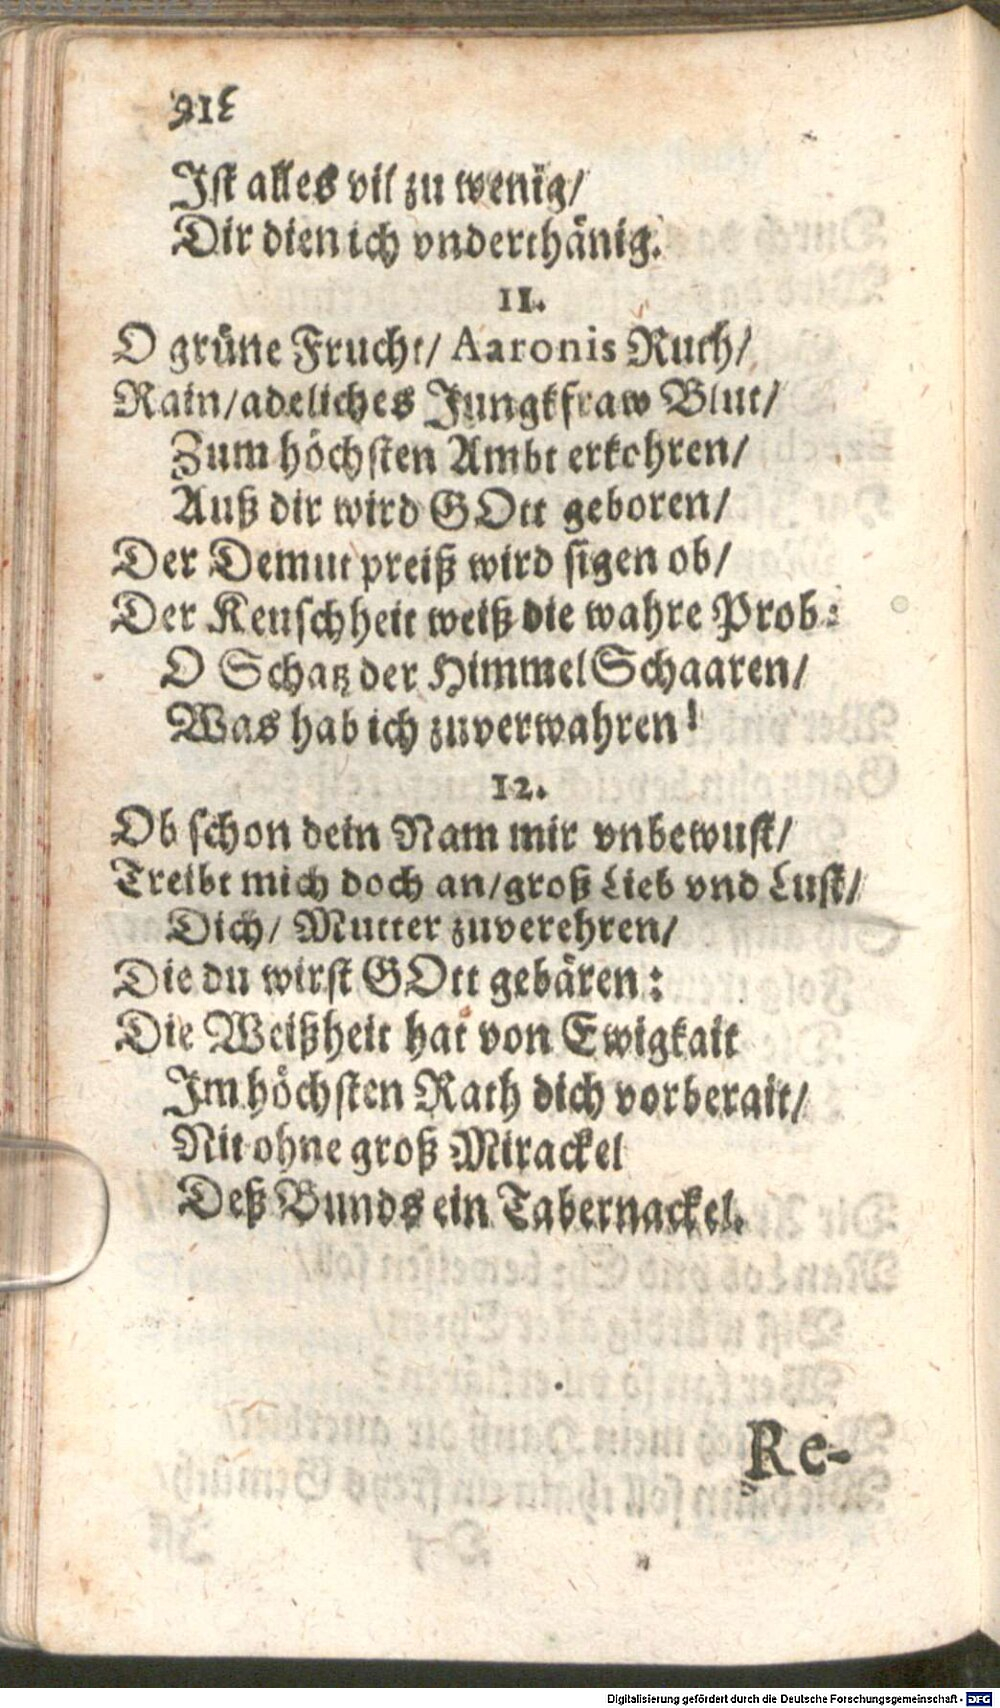 Ist alles vil zu wenig/
Dir dien ich vnderthänig.
11.
O grüne Frucht/ Aaronis Ruth/
Rain/adeliches Jungkfraw Blut/
Zum höchsten Ambt erkohren/
Auß dir wird GOtt geboren/
Der Demut preiß wird sigen ob/
Der Keuschheit weiß die wahre Prob:
O Schatz der Himmel Schaaren/
Was hab ich zuverwahren!
12.
Ob schon dein Nam mir vnbewust/
Treibt mich doch an/groß Lieb vnd Lust/
Dich/ Mutter zuverehren/
Die du wirst GOtt gebären:
Die Weißheit hat von Ewigkait
Im höchsten Rath dich vorberait/
Nit ohne groß Mirackel
Deß Bunds ein Tabernackel.
Re-
Digitalisierung gefördert durch die Deutsche Forschungsgemeinschaft - DFG